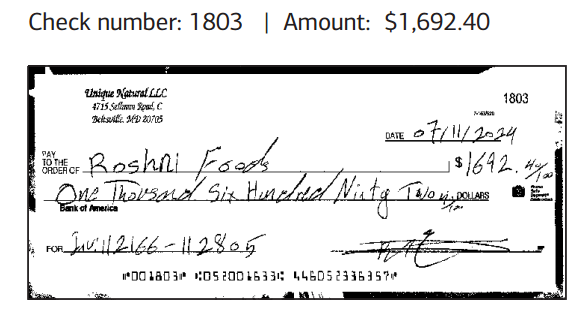 Check number: 1803 | Amount: $1,692.40
Unique Natural LLC
4715 Sellman Road, C
Beltsville, MD 20705
1803
DATE 07/11/2024
PAY
TO THE
ORDER OF Roshni Foods $1692. 40/100
One Thousand Six Hundred Ninty Two 40/100 DOLLARS
Bank of America
FOR Inv. 112166-112805
⑈001803⑈ ⑆052001633⑆ 446052336357⑈